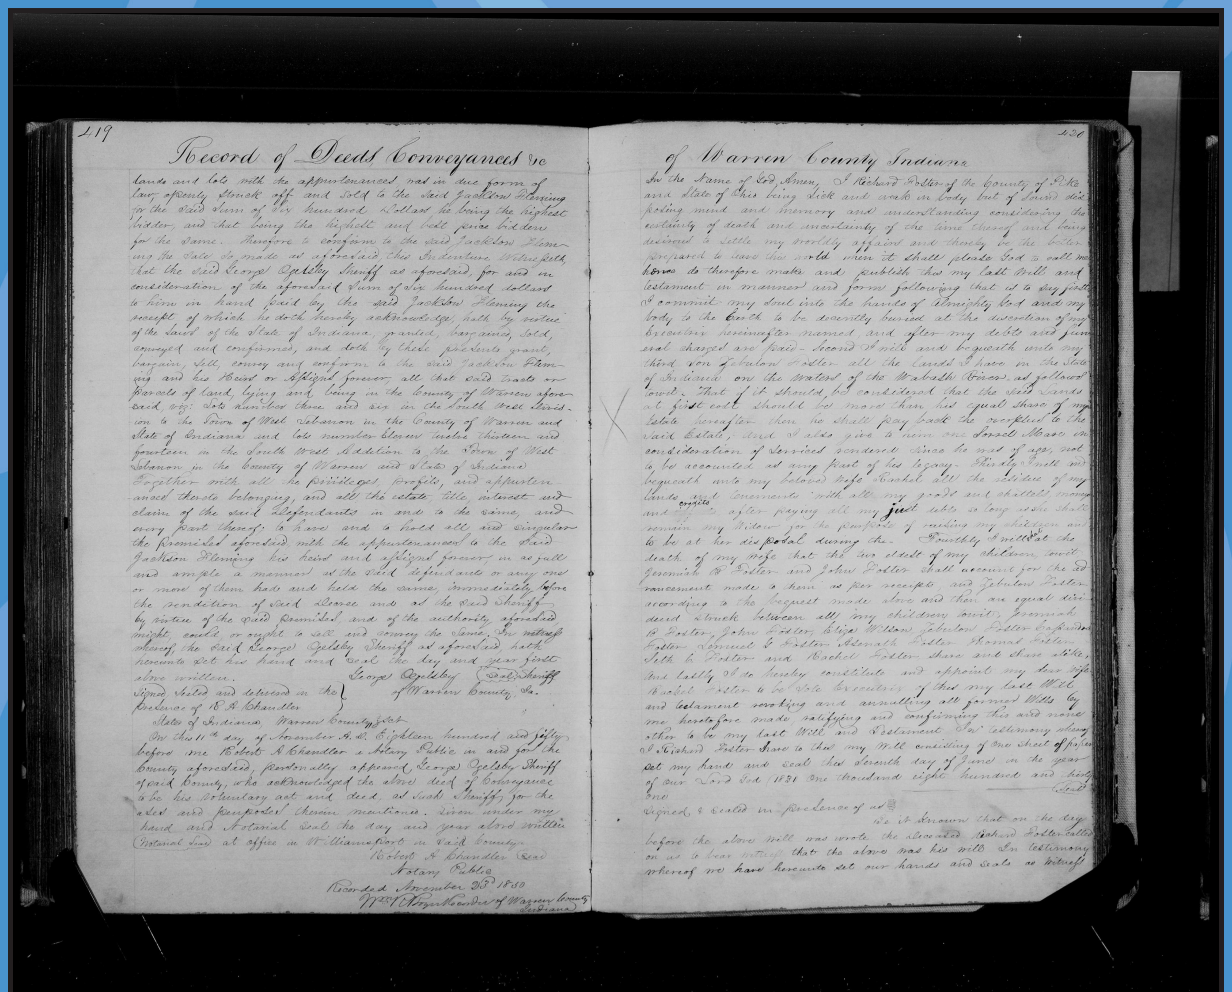 419
Record of Deeds Conveyances &c
lands and lots with the appurtenances was in due form of
law openly struck off and sold to the said Jackson Fleming
for the said sum of six hundred dollars he being the highest
bidder, and that being the highest and best price bidden
for the same. Therefore to confirm to the said Jackson Flem-
ing the sale so made as aforesaid this Indenture Witnesseth,
that the said George Ogelsby Sheriff as aforesaid, for and in
consideration of the aforesaid sum of six hundred dollars
to him in hand paid by the said Jackson Fleming the
receipt of which he doth hereby acknowledge, hath by virtue
of the laws of the State of Indiana, granted, bargained, sold,
conveyed and confirmed, and doth by these presents grant,
bargain, sell, convey and confirm to the said Jackson Flem-
ing and his Heirs or Assigns forever, all that said tracts or
parcels of land, lying and being in the County of Warren afore
said viz: Lots number three and six in the South West divis-
ion to the Town of West Lebanon in the County of Warren and
State of Indiana and lots number Eleven twelve thirteen and
fourteen in the South West Addition to the Town of West
Lebanon in the County of Warren and State of Indiana
Together with all the privileges, profits, and appurten
ances thereto belonging, and all the estate, title, interest and
claim of the said Defendants in and to the same, and
every part thereof; to have and to hold all and singular
the premises aforesaid with the appurtenances to the said
Jackson Fleming his heirs and assigns forever, in as full
and ample a manner, as the said defendants or any one
or more of them had and held the same, immediately before
the rendition of said Decree and as the said Sheriff
by virtue of the said premises, and of the authority aforesaid
might, could or ought to sell and convey the same. In witness
whereof, the said George Ogelsby Sheriff as aforesaid, hath
hereunto set his hand and seal the day and year first
above written. George Ogelsby (Seal) Sheriff
Signed Sealed and delivered in the of Warren County, Ia.
presence of R A Chandler
State of Indiana Warren County, Sct
On this 11th day of November A.D. Eighteen hundred and fifty
before me Robert A Chandler a Notary Public in and for the
County aforesaid, personally appeared, George Ogelsby Sheriff
of said County, who acknowledged the above deed of Conveyance
to be his voluntary act and deed, as such Sheriff, for the
uses and purposes therein mentioned. Given under my
hand and Notarial Seal the day and year above written
(Notarial Seal) at office in Williamsport in said County.
Robert A Chandler Seal
Notary Public
Recorded November 23d 1850
Recorder of Warren County
Indiana
420
of Warren County Indiana
In the Name of God, Amen, I Richard Foster of the County of Pike
and State of Ohio being sick and weak in body but of sound dis
posing mind and memory and understanding considering the
certainty of death and uncertainty of the time thereof and being
desirous to settle my worldly affairs and thereby be the better
prepared to leave this world when it shall please God to call me
hence do therefore make and publish this my last Will and
testament in manner and form following that is to say first
I commit my Soul into the hands of Almighty God and my
body to the Earth to be decently buried at the discretion of my
Executrix hereinafter named and after my debts and fun
eral charges are paid - Second I will and bequeath unto my
third son Zebulon Foster all the lands I have in the State
of Indiana on the waters of the Wabash River, as follows
towit. That if it should be considered that the said lands
at first cost should be more than his equal share of my
Estate hereafter then he shall pay back the overplus to the
said Estate, and I also give to him one Sorrel Mare in
consideration of services rendered since he was of age, not
to be accounted as any part of his legacy - Thirdly I will and
bequeath unto my beloved wife Rachel all the residue of my
lands and tenements with all my goods and chattels money
and credits after paying all my just debts so long as she shall
remain my Widow for the purpose of raising my children and
to be at her disposal during the. Fourthly I will that at the
death of my wife that the two eldest of my children, towit
Jeremiah B Foster and John Foster shall account for the ad
vancement made to them as per receipts and Zebulon Foster
according to the bequest made above and then an equal divi
dend struck between all my children towit, Jeremiah
B Foster, John Foster, Eliza Wilson, Zebulon Foster
Foster Lemuel G Foster Asenath Foster Thomas Foster
Seth G Foster and Rachel Foster share and share alike,
And lastly I do hereby constitute and appoint my dear wife
Rachel Foster to be sole Executrix of this my last Will
and testament revoking and annulling all former Wills by
me heretofore made ratifying and confirming this and none
other to be my last Will and Testament In testimony whereof
I Richard Foster have to this my Will consisting of one sheet of paper
set my hand and seal this Seventh day of June in the year
of our Lord God 1831 One thousand eight hundred and thirty
one (Seal)
Signed & Sealed in presence of us
Be it known that on the day
before the above will was wrote the deceased Richard Foster called
on us to bear witness that the above was his will In testimony
whereof we have hereunto set our hands and seals as witness